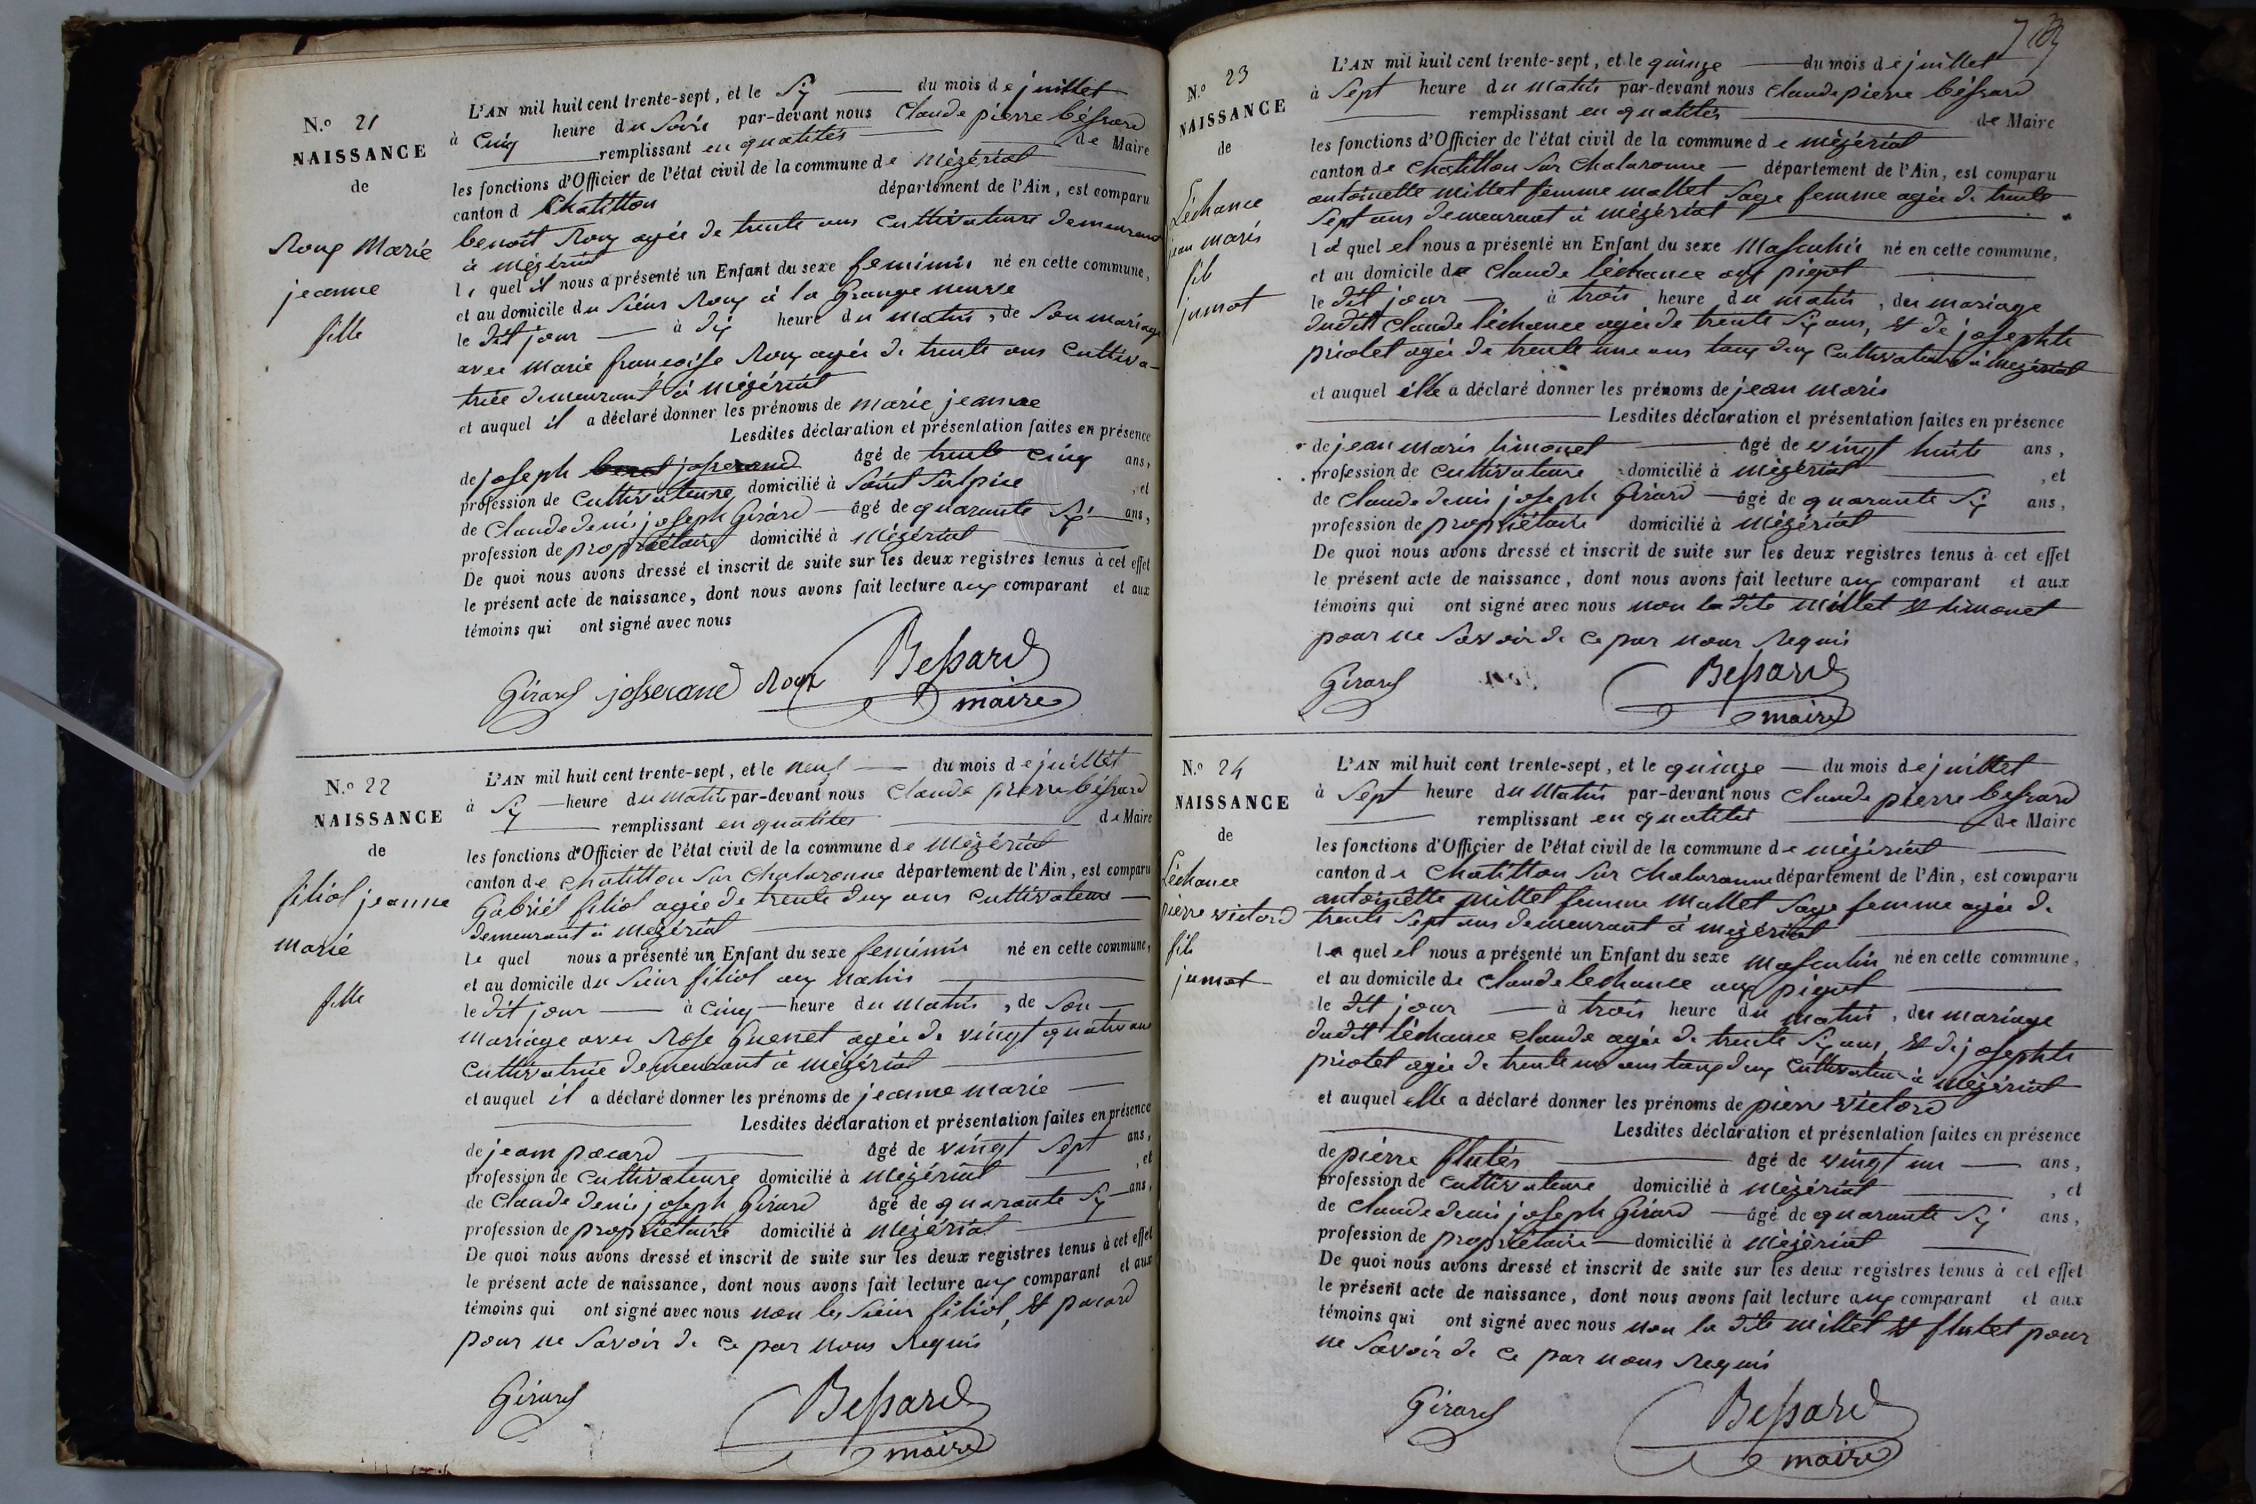 N.o 21
NAISSANCE
de
Roux Marie
jeanne
fille
L'AN mil huit cent trente-sept, et le Six du mois de juillet
à Cinq heure du Soire par-devant nous Claude pierre béssard
remplissant en qualités de Maire
les fonctions d'Officier de l'état civil de la commune de Mézériat
canton d Chatillon département de l'Ain, est comparu
benoit Roux agée de trente ans Cultivateure demeurant
à Mézériat
le quel il nous a présenté un Enfant du sexe feminin né en cette commune,
et au domicile du Sieur Roux à la Grange neuve
le dit jour à dix heure du matin, de Son mariage
avec Marie françoise Roux agée de trente ans Cultiva-
trice demeurant à Mézériat
et auquel il a déclaré donner les prénoms de marie jeanne
Lesdites déclaration et présentation faites en présence
de joseph josserand âgé de trente Cinq ans,
profession de Cultivateure domicilié à Saint Sulpice , et
de Claude denis joseph Girard âgé de quarante Six ans,
profession de propriétaire domicilié à Mézériat
De quoi nous avons dressé et inscrit de suite sur les deux registres tenus à cet effet
le présent acte de naissance, dont nous avons fait lecture aux comparant et aux
témoins qui ont signé avec nous
Girard josserand Roux Bessard
maire
N.o 22
NAISSANCE
de
filiol jeanne
marie
fille
L'AN mil huit cent trente-sept, et le neuf du mois de juillet
à Six heure du Matin par-devant nous Claude pierre béssard
remplissant en qualités de Maire
les fonctions d'Officier de l'état civil de la commune de Mézériat
canton de Chatillon Sur Chalaronne département de l'Ain, est comparu
Gabriel filiol agée de trente deux ans Cultivateure
demeurant à Mézériat
le quel nous a présenté un Enfant du sexe feminin né en cette commune,
et au domicile du Sieur filiol aux
le dit jour à Cinq heure du matin, de Son
mariage avec Rose Guenet agée de vingt quatre ans
Cultivatrice demeurant à Mézériat
et auquel il a déclaré donner les prénoms de jeanne marie
Lesdites déclaration et présentation faites en présence
de jean pacard âgé de vingt Sept ans,
profession de Cultivateure domicilié à Mézériat , et
de Claude denis joseph Girard âgé de quarante Six ans,
profession de propriétaire domicilié à Mézériat
De quoi nous avons dressé et inscrit de suite sur les deux registres tenus à cet effet
le présent acte de naissance, dont nous avons fait lecture aux comparant et aux
témoins qui ont signé avec nous non les Sieur filiol, et pacard
pour ne Savoir de ce par nous Requis
Girard Bessard
maire
N.o 23
NAISSANCE
de
Léchance
jean marie
fils
jumot
L'AN mil huit cent trente-sept, et le quinze du mois de juillet
à Sept heure du Matin par-devant nous Claude pierre béssard
remplissant en qualités de Maire
les fonctions d'Officier de l'état civil de la commune de Mézériat
canton de Chatillon Sur Chalaronne département de l'Ain, est comparu
antoinette millet femme mallet Sage femme agée de trente
Sept ans demeurant à Mézériat
la quel el nous a présenté un Enfant du sexe Masculin né en cette commune,
et au domicile de Claude léchance aux pigot
le dit jour à trois heure du matin, du mariage
dudit Claude léchance agée de trente Six ans, et de josephte
priolet agée de trente une ans tous deux Cultivateure à Mézériat
et auquel elle a déclaré donner les prénoms de jean marie
Lesdites déclaration et présentation faites en présence
de jean marie limonet âgé de vingt huite ans,
profession de Cultivateure domicilié à Mézériat , et
de Claude denis joseph Girard âgé de quarante Six ans,
profession de propriétaire domicilié à Mézériat
De quoi nous avons dressé et inscrit de suite sur les deux registres tenus à cet effet
le présent acte de naissance, dont nous avons fait lecture aux comparant et aux
témoins qui ont signé avec nous non la dite millet et limonet
pour ne Savoir de ce par nous Requis
Girard Bessard
maire
N.o 24
NAISSANCE
de
Léchance
pierre victord
fils
jumot
L'AN mil huit cent trente-sept, et le quinze du mois de juillet
à Sept heure du Matin par-devant nous Claude pierre bessard
remplissant en qualités de Maire
les fonctions d'Officier de l'état civil de la commune de Mézériat
canton de Chatillon Sur Chalaronne département de l'Ain, est comparu
antoinette millet femme Mallet Sage femme agée de
trente Sept ans demeurant à Mézériat
la quel el nous a présenté un Enfant du sexe Masculin né en cette commune,
et au domicile de Claude lechance aux pigot
le dit jour à trois heure du matin, du mariage
dudit léchance Claude agée de trente Six ans, et de josephte
priolet agée de trente un ans tous deux Cultivateure à Mézériat
et auquel elle a déclaré donner les prénoms de pierre victord
Lesdites déclaration et présentation faites en présence
de pierre flutet âgé de vingt un ans,
profession de Cultivateure domicilié à Mézériat , et
de Claude denis joseph Girard âgé de quarante Six ans,
profession de propriétaire domicilié à Mézériat
De quoi nous avons dressé et inscrit de suite sur les deux registres tenus à cet effet
le présent acte de naissance, dont nous avons fait lecture aux comparant et aux
témoins qui ont signé avec nous non la dite millet et flutet pour
ne Savoir de ce par nous Requis
Girard Bessard
maire